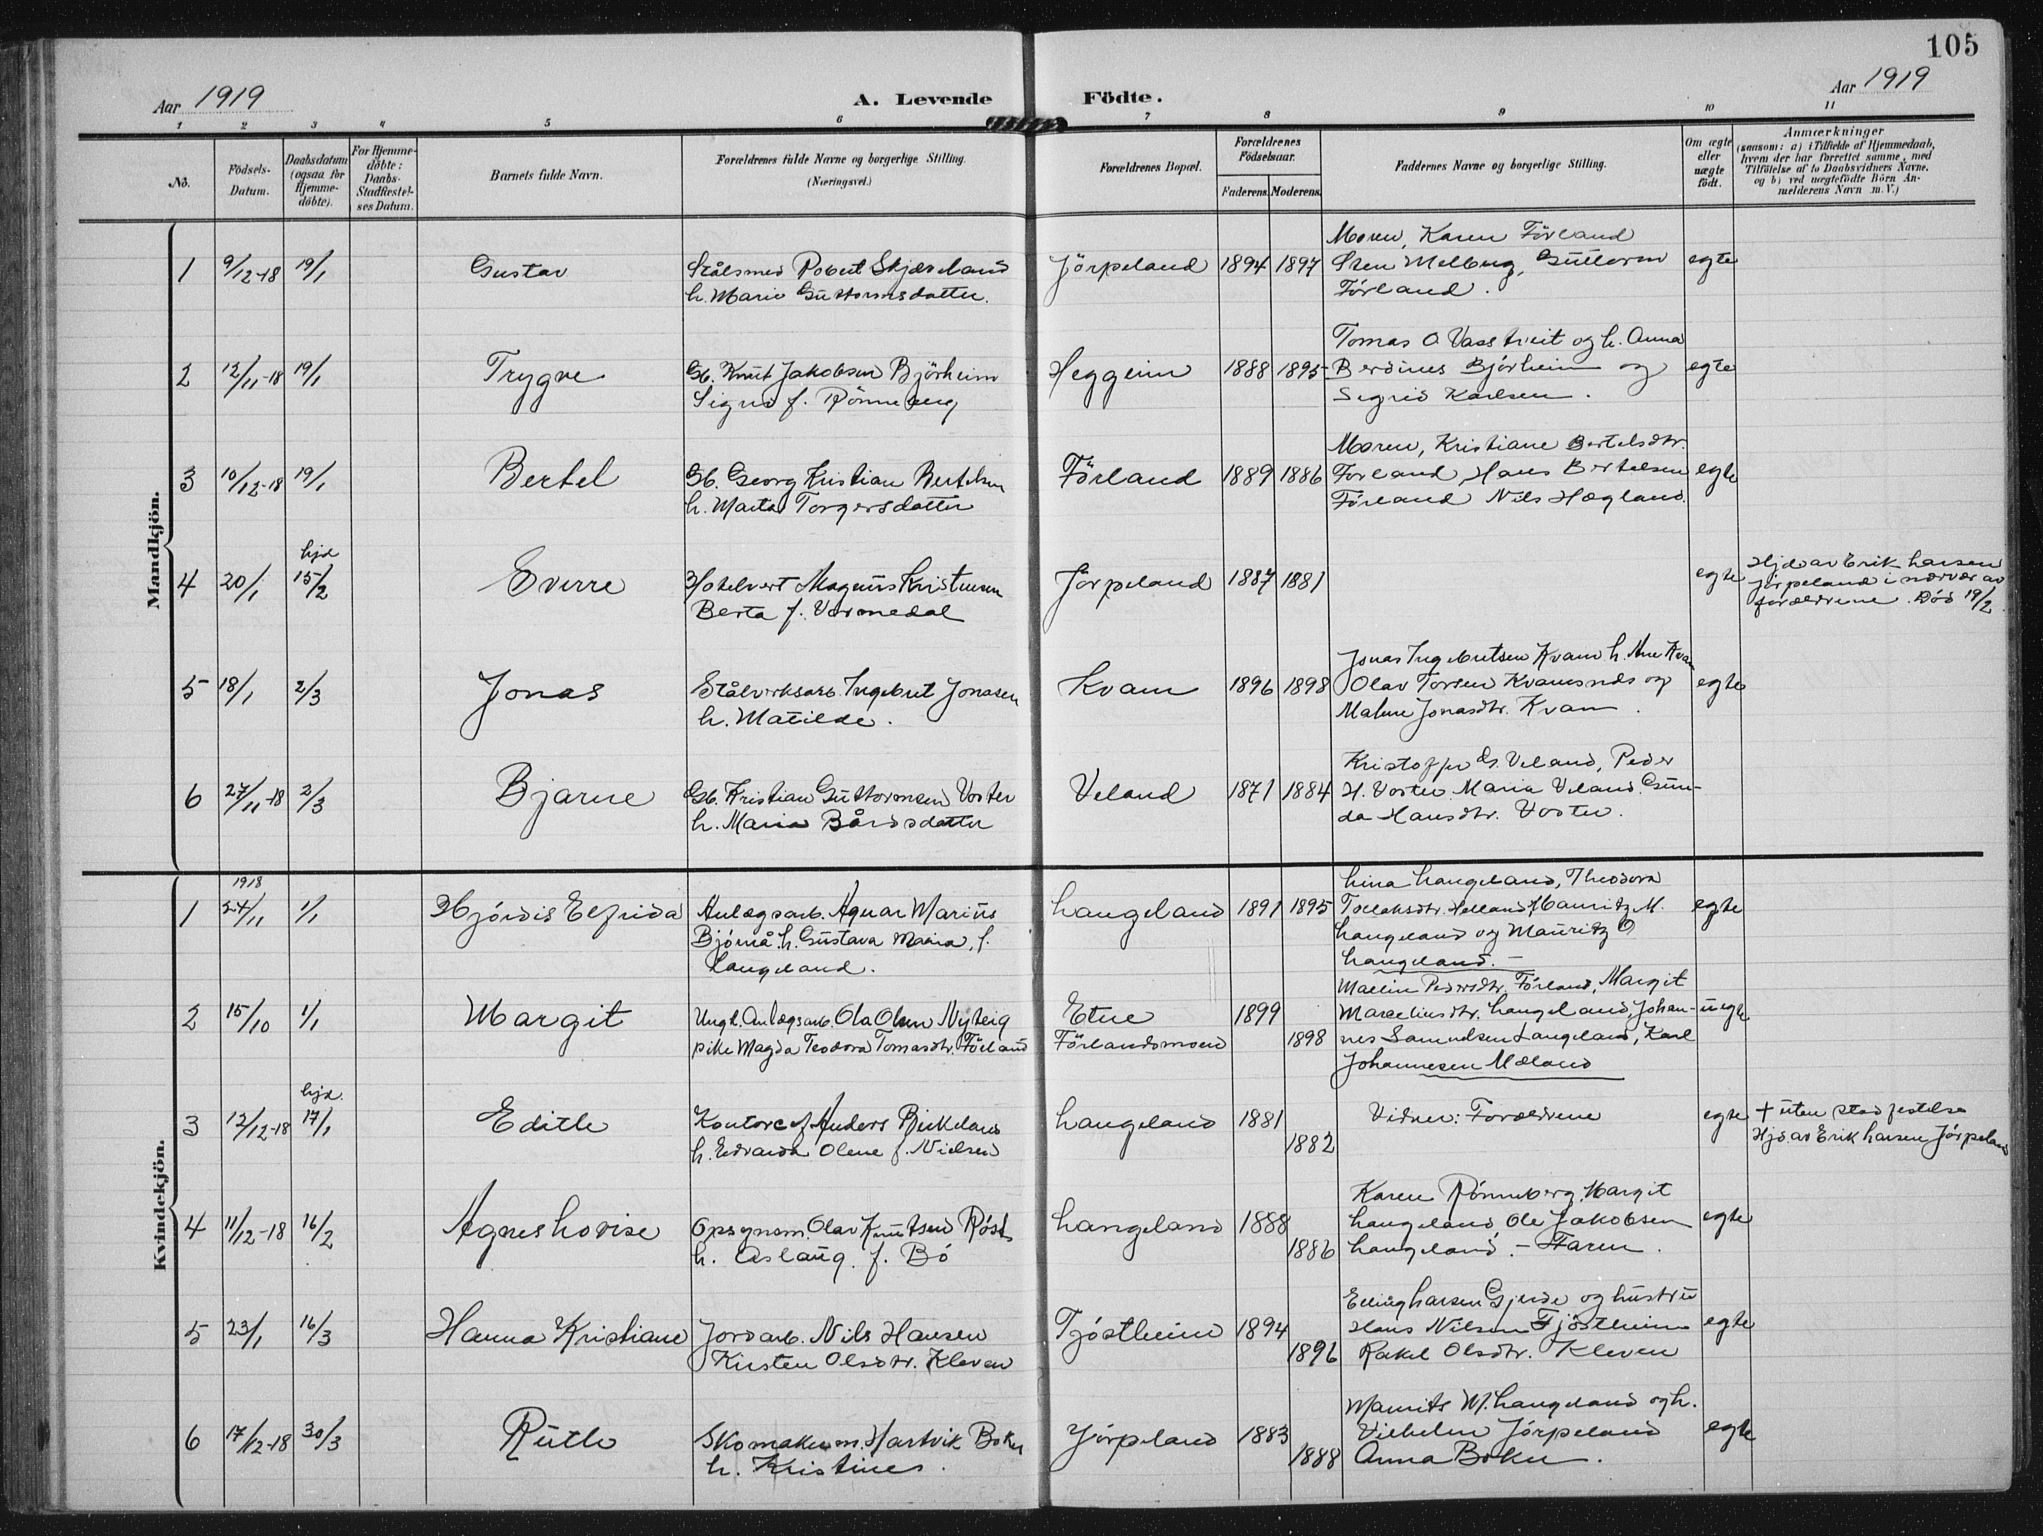 105
Aar 1919
A. Levende Födte.
Aar 1919
1 2 3 4 5 6 7 8 9 10 11
No.
Födsels-
Datum.
Daabsdatum
(ogsaa for
Hjemme-
döbte).
For Hjemme-
döbte:
Daabs-
Stadfæstel-
ses Datum.
Barnets fulde Navn.
Forældrenes fulde Navne og borgerlige Stilling.
(Næringsvei.)
Forældrenes Bopæl.
Forældrenes
Födselsaar.
Faderens. Moderens.
Faddernes Navne og borgerlige Stilling.
Om ægte
eller
uægte
født.
Anmærkninger
(saasom: a) i Tilfælde af Hjemmedaab,
hvem der har forrettet samme, med
Tilföielse af to Daabsvidners Navne.
og b) ved uægtefödte Börn An-
melderens Navn m. V.)
Mandkjön.
1 9/12-18 19/1 Gustav
Stålsmed Robert Skjæveland
h. Marie Guttormsdatter.
Jörpeland 1894 1897
Moren, Karen Förland
Sten Melberg, Guttorm
Förland.
egte
2 12/11-18 19/1 Trygve
Gb. Knut Jakobsen Björheim
Signe f. Rönneberg
Heggeim 1888 1895
Tomas O. Vasstveit og h. Anna
Berdines Björheim og
Sigrid Karlsen.
egte
3 10/12-18 19/1 Bertel
Gb. Georg Kristian Bertelsen
h. Marta Torgersdatter
Förland 1889 1886
Moren, Kristiane Bertelsdtr.
Förland, Hans Bertelsen
Förland Nils Hægland.
egte
4 20/1 hjd 15/2 Sverre
Hotelvert Magnus Kristensen
Berta f. Vormedal
Jörpeland 1887 1881
egte
Hjd av Erik Larsen
Jörpeland i nærvær av
forældrene. Död 19/2.
5 18/1 2/3 Jonas
Stålverksarb. Ingebret Jonasen
h. Matilde.
Kvam 1896 1898
Jonas Ingebretsen Kvam h. Ane Kvam
Olav Torsen Kvamsnes og
Malene Jonasdtr. Kvam.
egte
6 27/11-18 2/3 Bjarne
Gb. Kristian Guttormsen Voster
h. Maria Bårdsdatter
Veland 1871 1884
Kristoffer G. Veland, Peder
H. Voster Maria Veland Gun-
da Hansdtr. Voster.
Kvindekjön.
1 1918 24/11 1/1 Hjördis Elfrida
Anlægsarb. Agnar Marius
Björnå h. Gustava Maria, f.
Langeland.
Langeland 1891 1895
Lina Langeland, Theodora
Tollaksdtr. Helland, Mauritz M.
Langeland og Mauritz O
Langeland.
egte
2 15/10 1/1 Margit
Ungk. Anlægsarb. Ola Olsen Nyteig
pike Magda Teodora Tomasdtr. Förland
Etne 1899
Förlandsmoen 1898
Mallin Pedersdtr. Förland, Margit
Marseliusdtr. Langeland, Johan-
nes Samuelsen Langeland, Karl
Johannesen Mæland
uegte
3 12/12-18 hjd. 17/1 Edith
Kontorchef Anders Birkeland
h. Edvarda Olene f. Nielsen
Langeland 1881 1882
Vidner: Forældrene
egte
† uten stadfestelse
Hjd. av Erik Larsen Jörpeland
4 11/12-18 16/2 Agnes Lovise
Opsynsm. Olav Knutsen Röst
h. Aslaug f. Bö
Langeland 1888 1886
Karen Rönneberg, Margit
Langeland Ole Jakobsen
Langeland. – Faren.
egte
5 23/1 16/3 Hanna Kristiane
Jordarb. Nils Hansen
Kirsten Olsdtr. Kleven
Tjöstheim 1894 1896
Elling Larsen Gjerde og hustru
Hans Nilsen Tjöstheim
Rakel Olsdtr. Kleven
egte
6 17/12-18 30/3 Ruth
Skomakerm. Hartvik Boken
h. Kristines.
Jörpeland 1883 1888
Maurits M. Langeland og h.
Vilhelm Jörpeland
Anna Boken.
egte